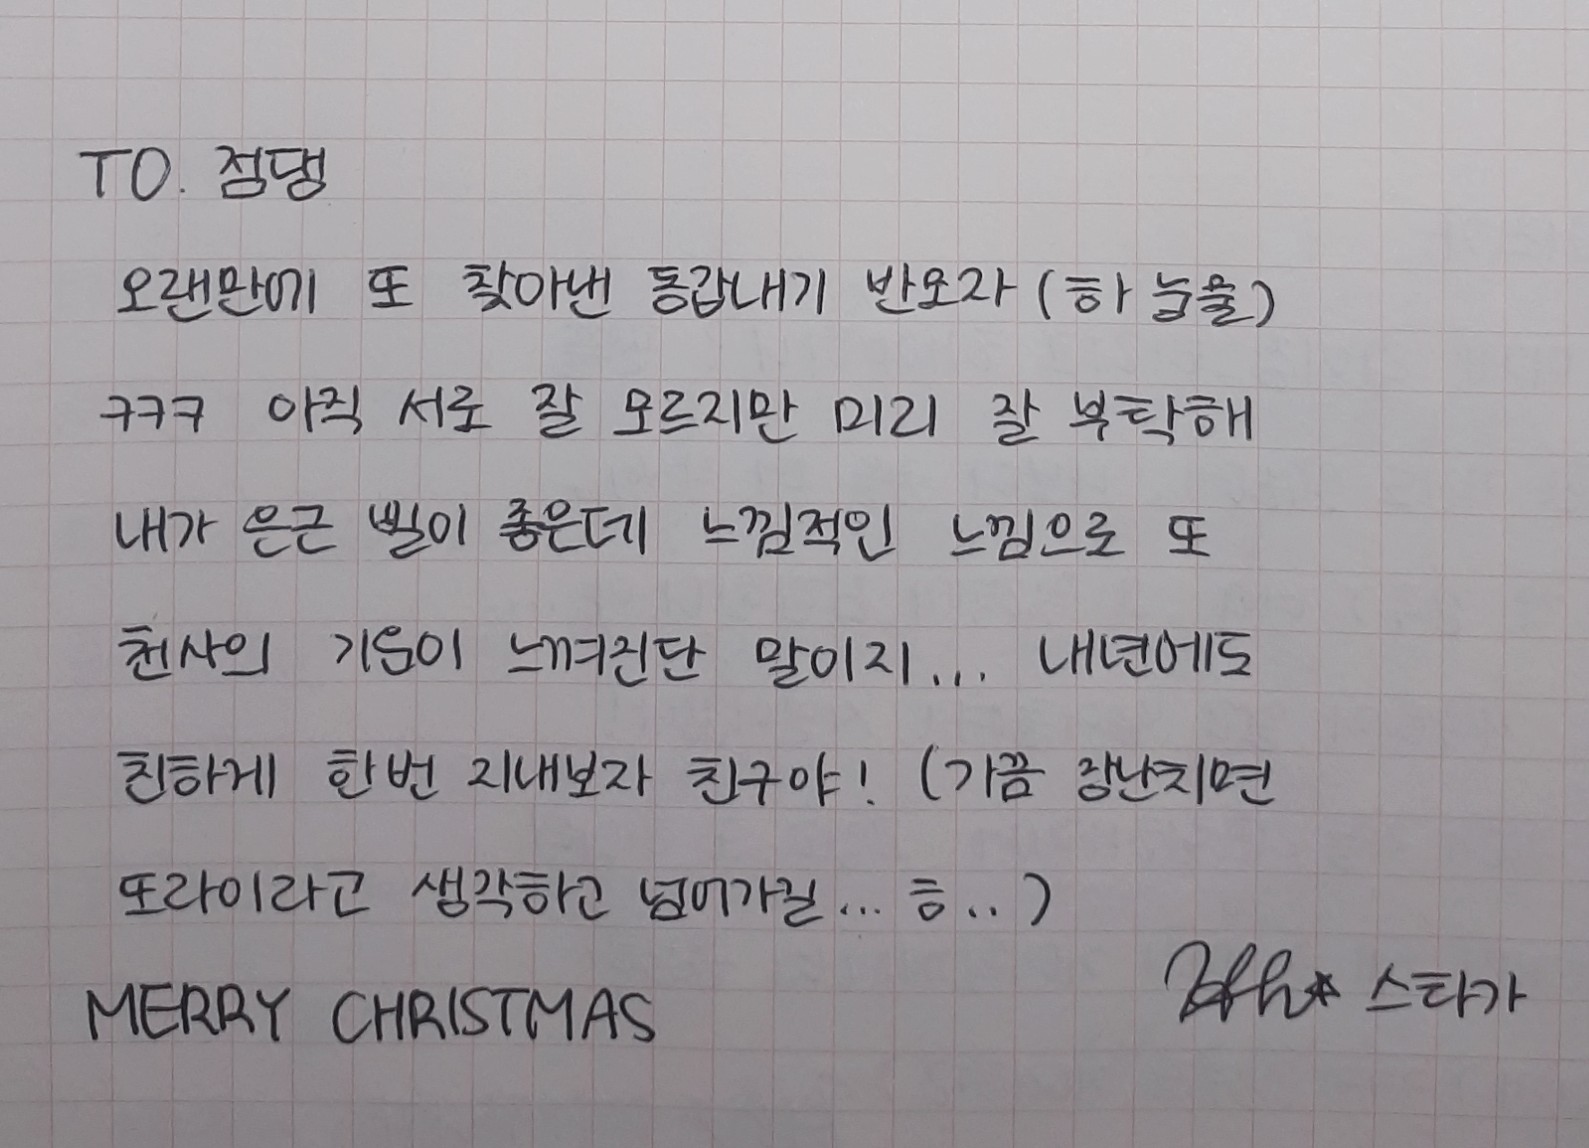 TO. 점댕
오랜만에 또 찾아낸 동갑내기 반오자 (하 눈물)
ㅋㅋㅋ 아직 서로 잘 모르지만 미리 잘 부탁해
내가 은근 삘이 좋은데 느낌적인 느낌으로 또
천사의 기운이 느껴진단 말이지... 내년에도
친하게 한번 지내보자 친구야! (가끔 장난치면
또라이라고 생각하고 넘어가길... 흐..)
스타가
MERRY CHRISTMAS